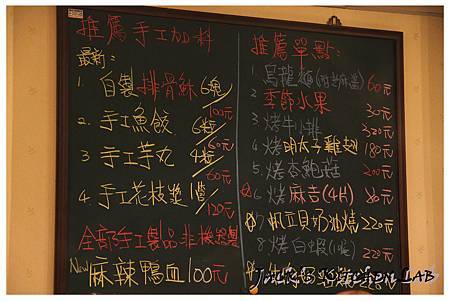 推薦手工加料
最新：
1. 自製排骨酥 6塊/100元
2. 手工魚餃 6粒/60元
3. 手工芋丸 4粒/60元
4. 手工花枝漿 1管/120元
全部手工製品非機器製
New 麻辣鴨血 100元
推薦單點：
1. 烏龍麵 60元
2. 季節水果 30元
3 烤牛小排 320元
4. 烤明太子雞翅 180元
5. 烤杏鮑菇 200元
6 烤麻吉(4片) 80元
7 帆立貝奶油燒 220元
8 烤白蝦 220元
JACK'S KITCHEN LAB